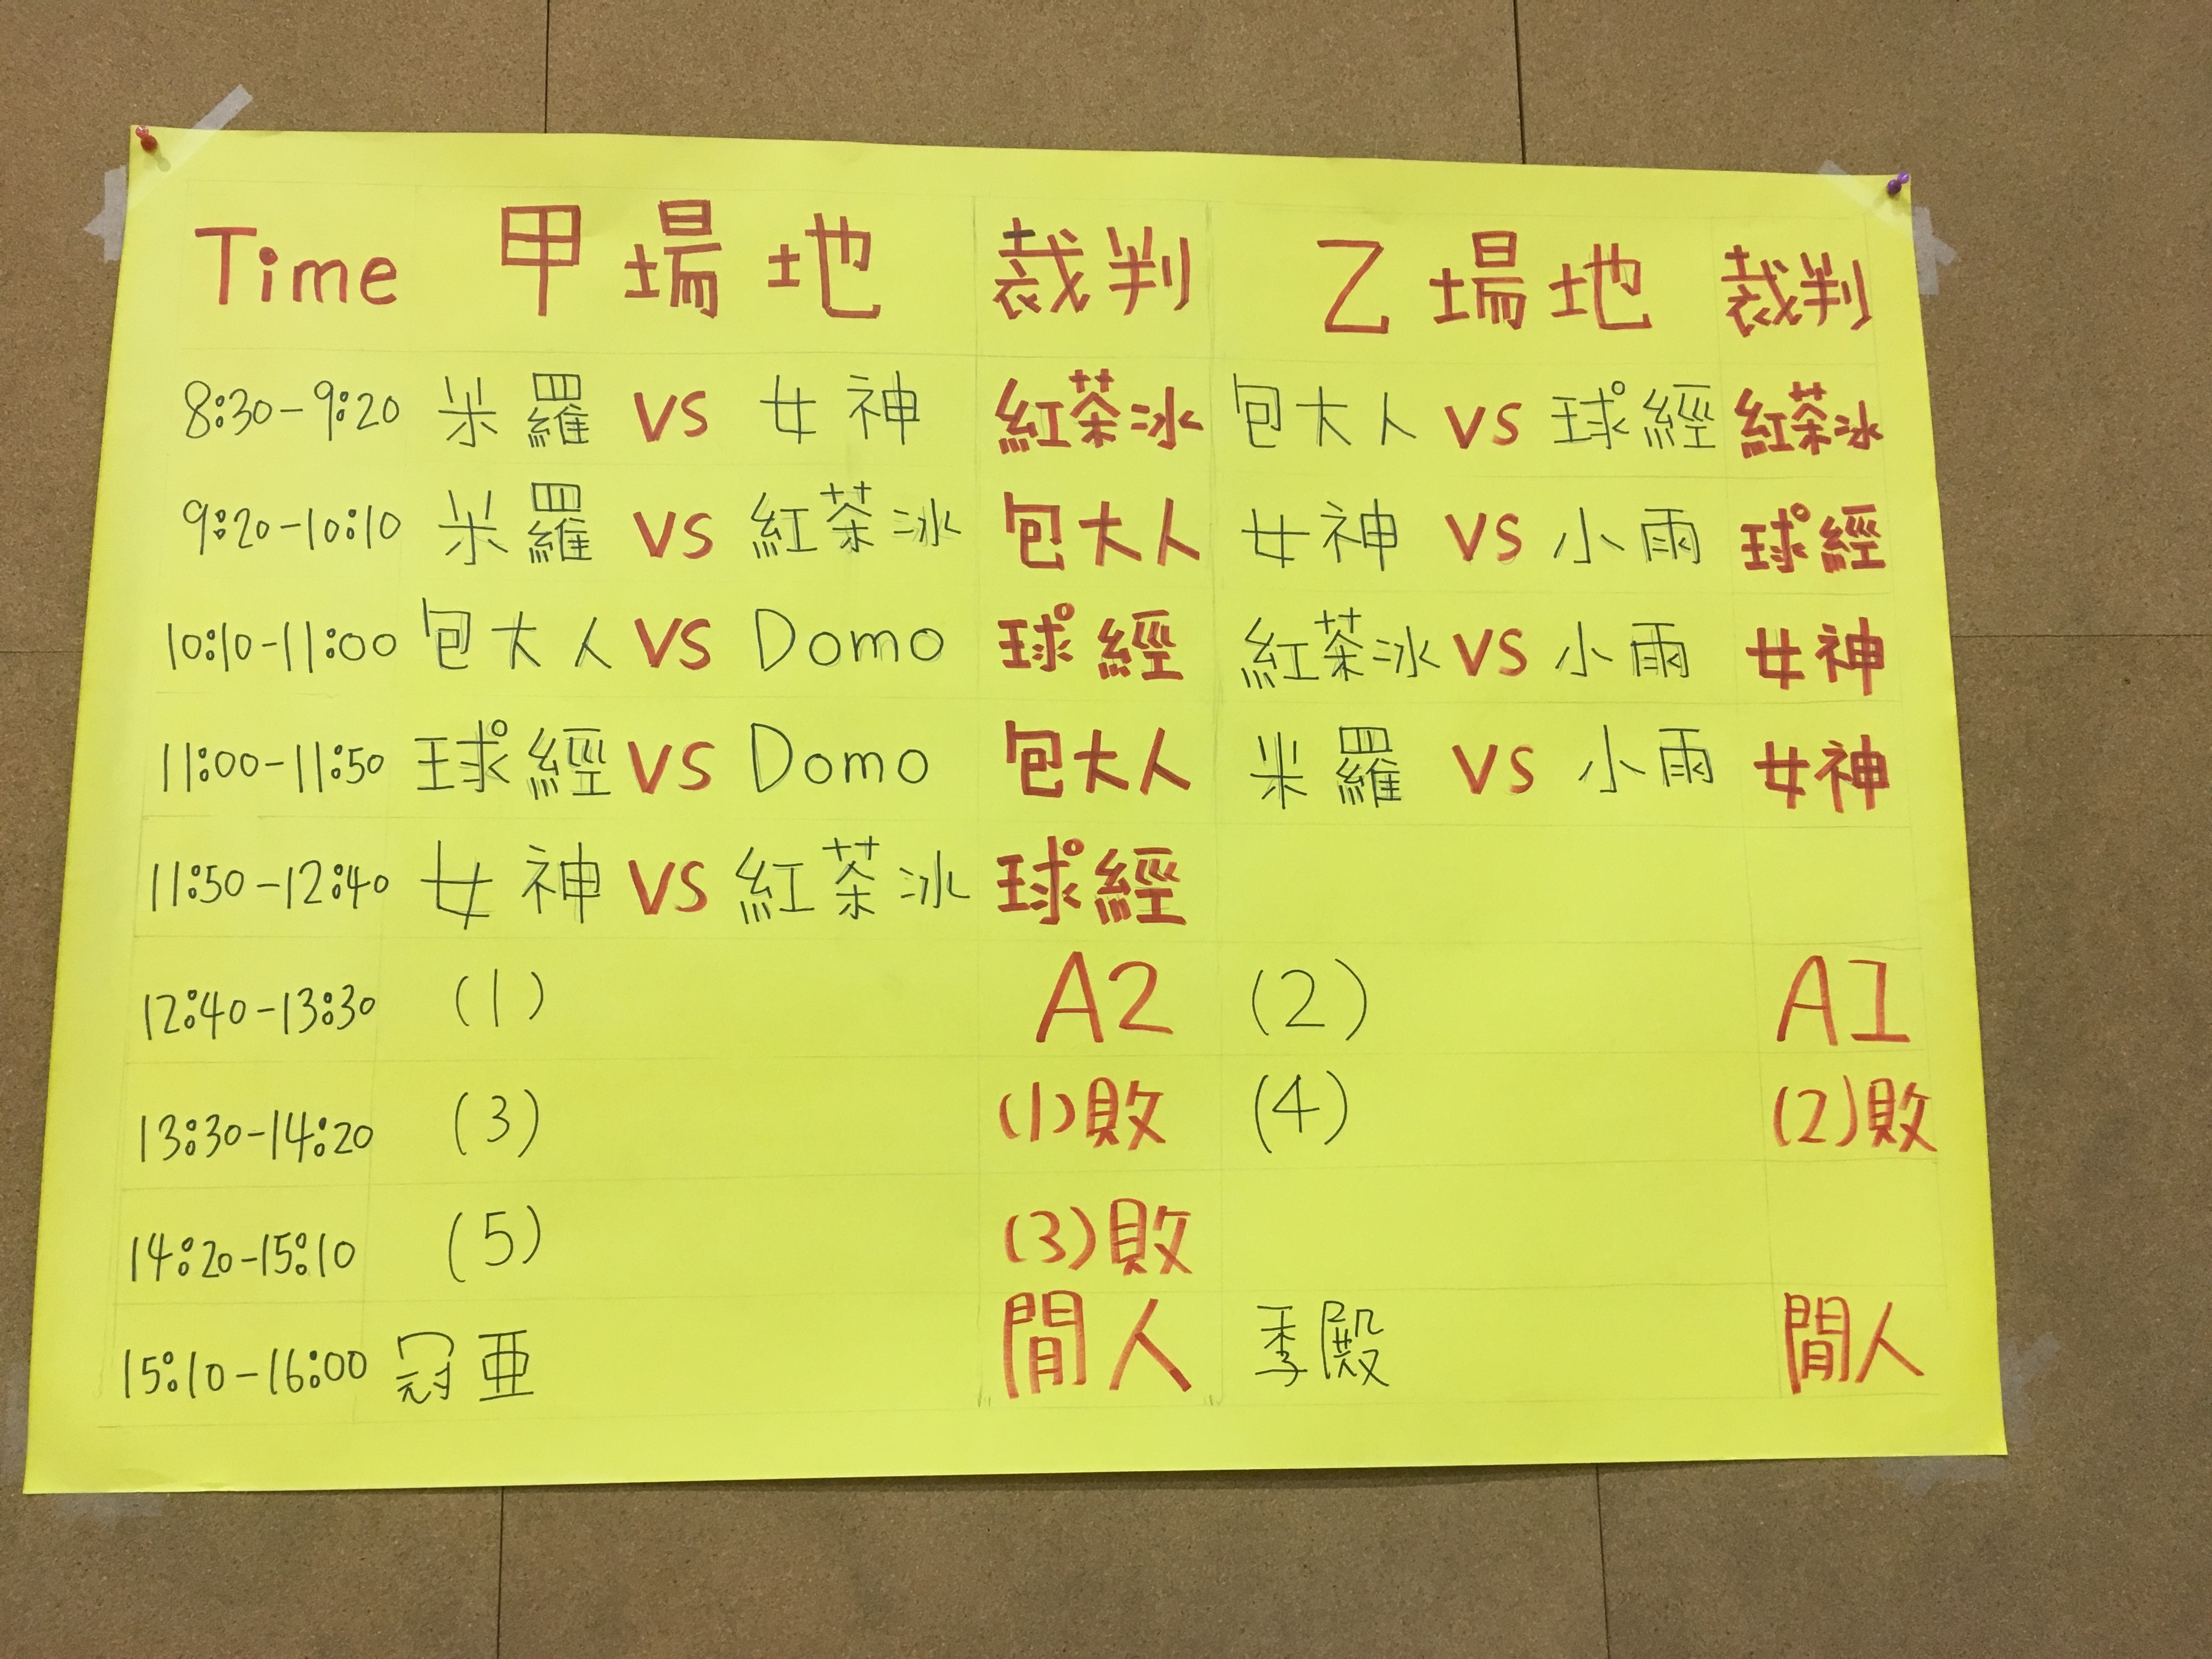 Time 甲場地 裁判 乙場地 裁判
8:30-9:20 米羅 VS 女神 紅茶冰 包大人 VS 球經 紅茶冰
9:20-10:10 米羅 VS 紅茶冰 包大人 女神 VS 小雨 球經
10:10-11:00 包大人 VS Domo 球經 紅茶冰 VS 小雨 女神
11:00-11:50 球經 VS Domo 包大人 米羅 VS 小雨 女神
11:50-12:40 女神 VS 紅茶冰 球經
12:40-13:30 (1) A2 (2) A1
13:30-14:20 (3) (1)敗 (4) (2)敗
14:20-15:10 (5) (3)敗
15:10-16:00 冠亜 閒人 季殿 閒人